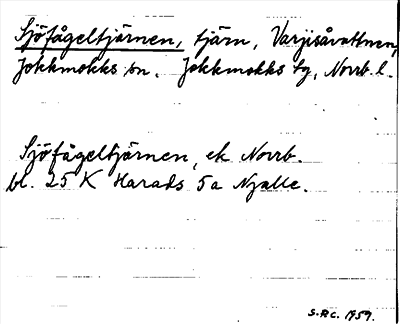 Sjöfågeltjärnen, tjärn, Varjisåvattnen,
Jokkmokks sn. Jokkmokks tg, Norrb. l.
Sjöfågeltjärnen, ek Norrb.
bl. 25 K Harads 5a Njalle.
S.RC. 1959.